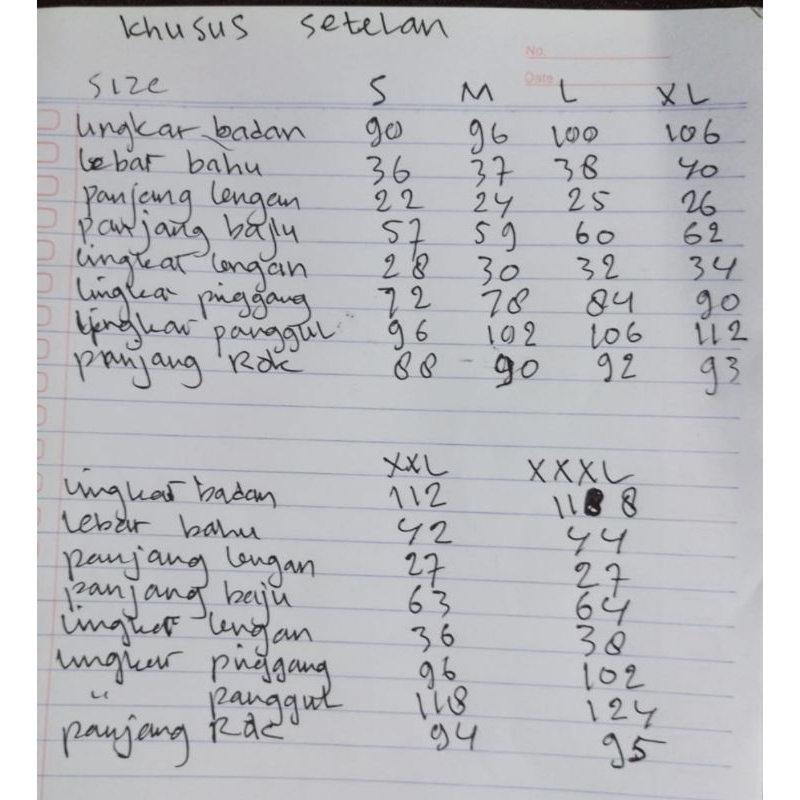 khusus setelan
No.
Date
SIZE S M L XL
lingkar badan 90 96 100 106
lebar bahu 36 37 38 40
panjang lengan 22 24 25 26
panjang baju 57 59 60 62
lingkar lengan 28 30 32 34
lingkar pinggang 72 78 84 90
lingkar panggul 96 102 106 112
panjang Rok 88 90 92 93
XXL XXXL
lingkar badan 112 118
lebar bahu 42 44
panjang lengan 27 27
panjang baju 63 64
lingkar lengan 36 38
lingkar pinggang 96 102
" panggul 118 124
panjang Rok 94 95